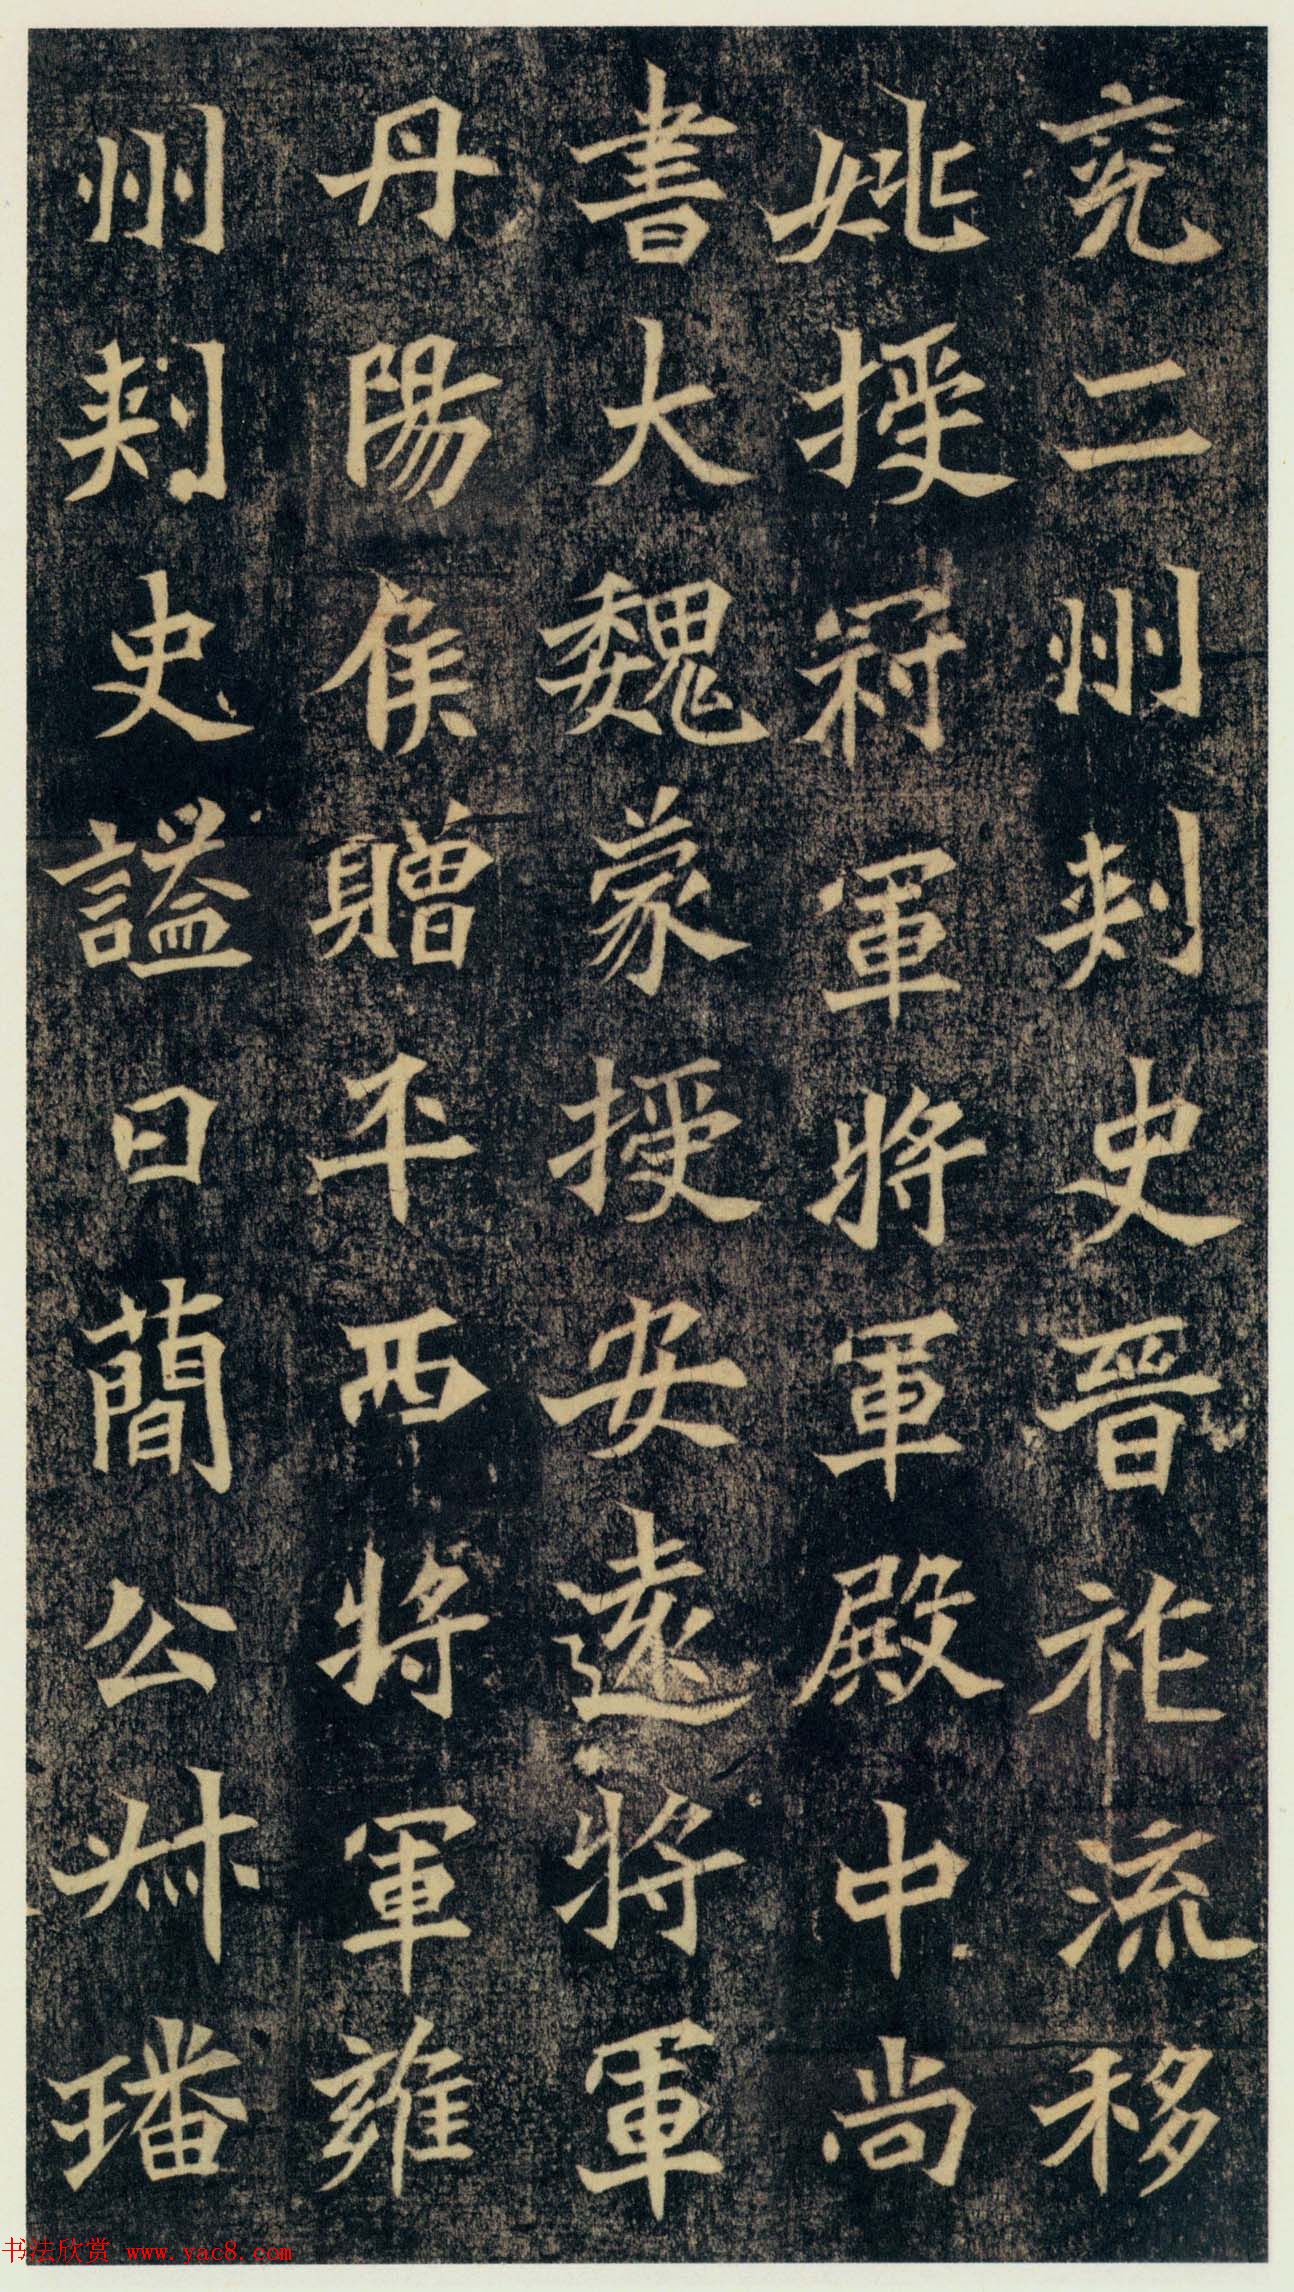 兖二州刾史晉祚流移
姚授冠軍將軍殿中尚
書大魏蒙授安逺將軍
丹陽侯贈平西將軍雍
州刾史謚曰蕳公叔璠
书法欣赏 www.yac8.com